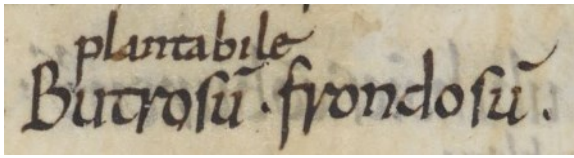 plantabile
Butrosū · frondosū .